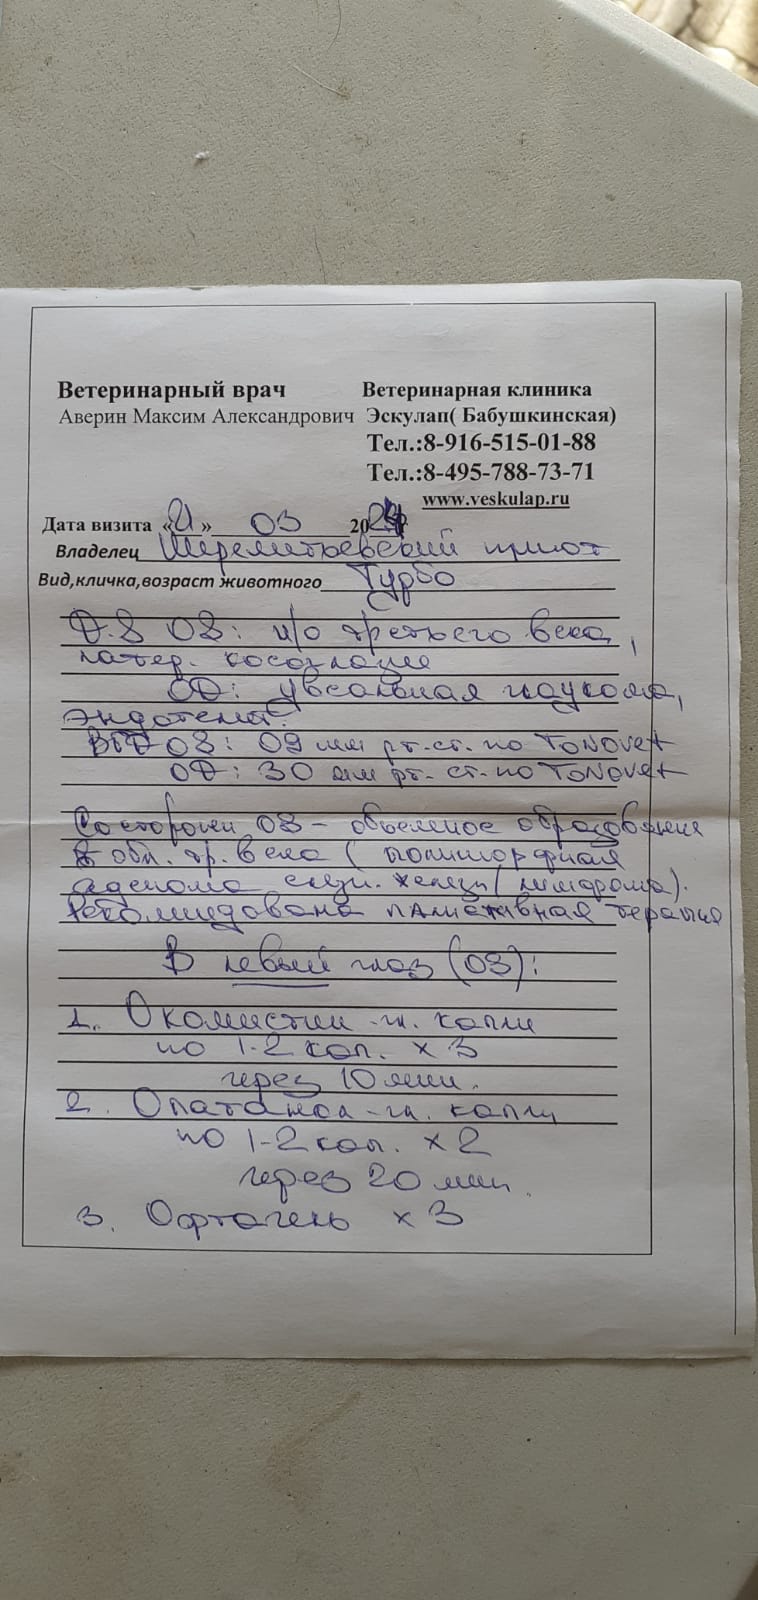 Ветеринарный врач Ветеринарная клиника
Аверин Максим Александрович Эскулап( Бабушкинская)
Тел.:8-916-515-01-88
Тел.:8-495-788-73-71
www.veskulap.ru
Дата визита «21» 03 2024
Владелец Шереметьевский приют
Вид,кличка,возраст животного Турбо
D.S OS: н/о третьего века,
латер. косоглазие
OD: увеальная глаукома,
эндотелит?
ВГД OS: 09 мм рт.ст. по Tonovet
OD: 30 мм рт. ст. по Tonovet
Со стороны OS - объемное образование
в обл. тр. века (полиморфная
аденома слезн. железы (лимфома).
Рекомендована паллиативная терапия
В левый глаз (OS):
1. Окомистин - гл. капли
по 1-2 кап. х 3
через 10 мин.
2. Опатанол - гл. капли
по 1-2 кап. х 2
через 20 мин.
3. Офтагель х 3